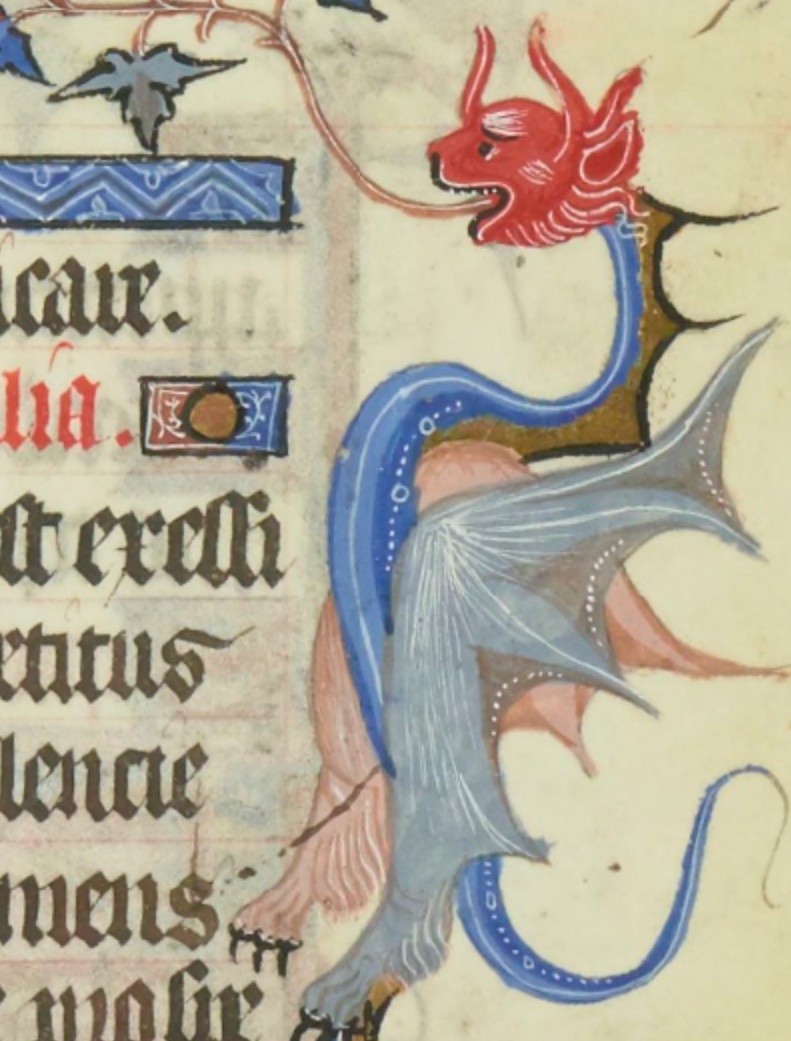 icare.
lia.
st exelsi
etitus
lencie
mens